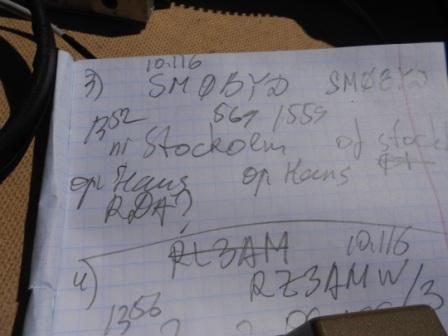 10.116
3) SMØBYD SMØBYD
13⁵² 569 / 559
nr Stockolm of stock
op Hans op Hans
RDA?
4) RL3AM 10.116
RZ3AMW/3
13⁵⁶